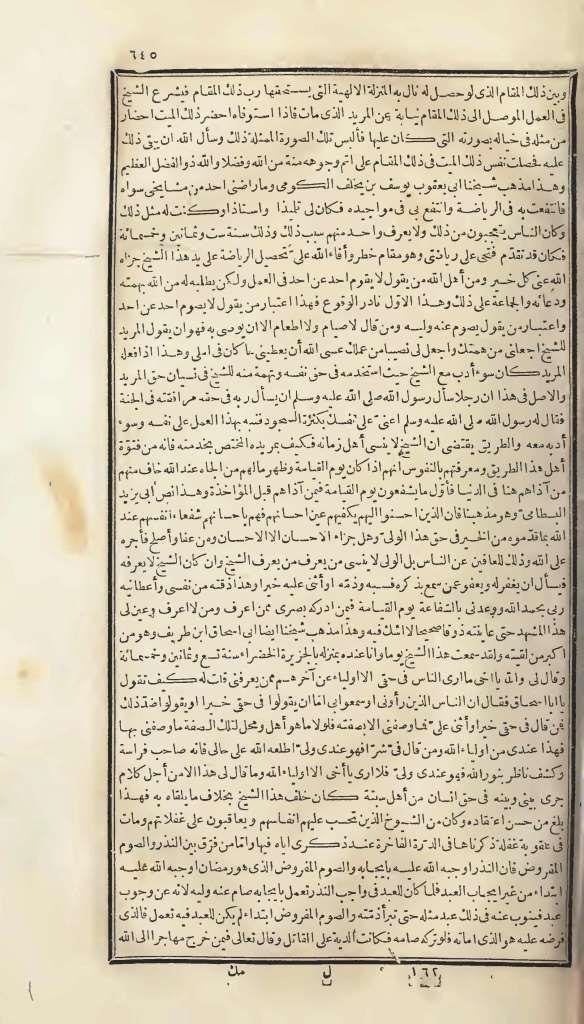 ٦٤٥
وبين ذلك المقام الذى لو حصل له نال به المنزلة الالهية التى يستحقها رب ذلك المقام فيشرع الشيخ
فى العمل الموصل الى ذلك المقام نيابة عن المريد الذى مات فاذا استوفاه احضر ذلك الميت احضار
من مثله فى خياله بصورته التى كان عليها فألبس تلك الصورة الممثلة ذلك وسأل الله ان يبقى ذلك
عليه فحصلت نفس ذلك الميت فى ذلك المقام على اتم وجوهه منة من الله وفضلا والله ذو الفضل العظيم
وهذا مذهب شيخنا ابى يعقوب يوسف بن يخلف الكومى وما راضنى احد من مشايخى سواه
فانتفعت به فى الرياضة وانتفع بى فى مواجيده فكان لى تلميذا واستاذا وكنت له مثل ذلك
وكان الناس يتعجبون من ذلك ولا يعرف واحد منهم سبب ذلك وذلك سنة ست وثمانين وخمسمائة
فكان قد تقدم فتحى على رياضتى وهو مقام خطر وأفاء الله على بتحصيل الرياضة على يد هذا الشيخ جزاه
الله عنى كل خير ومن أهل الله من يقول لا يقوم احد عن احد فى العمل ولكن يطلبه له من الله بهمته
ودعائه والجماعة على ذلك وهذا الاول نادر الوقوع فهذا اعتبار من يقول لا يصوم احد عن احد
واعتبار من يقول يصوم عنه وليه ومن قال لا صيام ولا اطعام الا ان يوصى به فهو ان يقول المريد
للشيخ اجعلنى من همتك واجعل لى نصيبا من عملك عسى الله أن يعطينى ما كان فى املى وهذا اذا فعله
المريد كان سوء أدب مع الشيخ حيث استخدمه فى حق نفسه وتهمة منه للشيخ فى نسيان حق المريد
والاصل فى هذا ان رجلا سأل رسول الله صلى الله عليه وسلم ان يسأل ربه فى حقه مرافقته فى الجنة
فقال له رسول الله صلى الله عليه وسلم اعنى على نفسك بكثرة السجود فنبه بهذا العمل على نفسه وسوء
أدبه معه والطريق يقتضى ان الشيخ لا ينسى أهل زمانه فكيف بمريده المختص بخدمته فانه من فتوة
أهل هذا الطريق ومعرفتهم بالنفوس انهم اذا كان يوم القيامة وظهر مالهم من الجاه عند الله خاف منهم
من آذاهم هنا فى الدنيا فأول ما يشفعون يوم القيامة فيمن آذاهم قبل المؤاخذة وهذا نص أبى يزيد
البسطامى وهو مذهبنا فان الذين احسنوا اليهم يكفيهم عين احسانهم فهم باحسانهم شفعاء انفسهم عند
الله بما قدموه من الخير فى حق هذا الولى وهل جزاء الاحسان الا الاحسان ومن عفا وأصلح فأجره
على الله وذلك للعافين عن الناس بل الولى لا ينسى من يعرف من يعرف الشيخ وان كان الشيخ لا يعرفه
فيسأل ان يغفر له ويعفو عمن سمع بذكره فسبه وذمه أو أثنى عليه خيرا وهذا ذقته من نفسى وأعطانيه
ربى بحمد الله ووعدنى بالشفاعة يوم القيامة فيمن ادركه بصرى ممن اعرف ومن لا اعرف وعين لى
هذا المشهد حتى عاينته ذوقا صحيحا لا اشك فيه وهذا مذهب شيخنا ايضا ابى اسحاق ابن طريف وهو من
اكبر من لقيته ولقد سمعت هذا الشيخ يوما وانا عنده بمنزله بالجزيرة الخضراء سنة تسع وثمانين وخمسمائة
وقال لى والله يا اخى ما ارى الناس فى حقى الا اولياء عن آخرهم ممن يعرفنى قلت له كيف تقول
يا ابا اسحاق فقال ان الناس الذين رأونى او سمعوا بى اما ان يقولوا فى حقى خيرا او يقولوا ضد ذلك
فمن قال فى حقى خيرا وأثنى على فما وصفنى الا بصفته فلولا ما هو أهل ومحل لتلك الصفة ما وصفنى بها
فهذا عندى من اولياء الله ومن قال فى شرا فهو عندى ولى اطلعه الله على حالى فانه صاحب فراسة
وكشف ناظر بنور الله فهو عندى ولى فلا ارى يا أخى الا اولياء الله وما قال لى هذا الا من أجل كلام
جرى بينى وبينه فى حق انسان من أهل سبتة كان خلف هذا الشيخ بخلاف ما يلقاه به فهذا
بلغ من حسن اعتقاده وكان من الشيوخ الذين تحسب عليهم انفاسهم ويعاقبون على غفلاتهم ومات
فى عقوبة غفلة ذكرناها فى الدرة الفاخرة عند ذكرى اياه فيها واما من فرق بين النذر والصوم
المفروض فان النذر اوجبه الله عليه بايجابه والصوم المفروض الذى هو رمضان اوجبه الله عليه
ابتداء من غير ايجاب العبد فلما كان للعبد فى واجب النذر تعمل بايجابه صام عنه وليه لانه عن وجوب
عبد فينوب عنه فى ذلك عبد مثله حتى تبرأ ذمته والصوم المفروض ابتداء لم يكن للعبد فيه تعمل فالذى
فرضه عليه هو الذى اماته فلو تركه صامه فكانت الدية على القاتل وقال تعالى فيمن خرج مهاجرا الى الله
١٦٢ ل مك